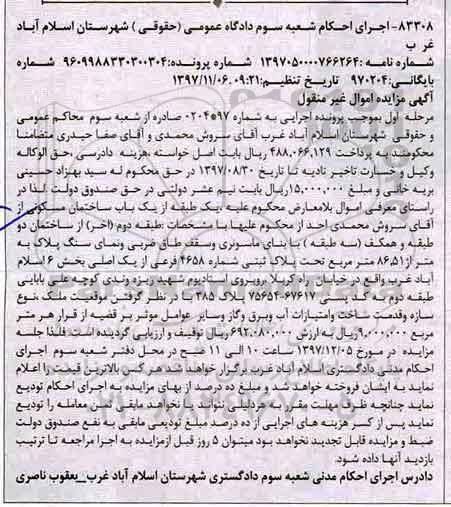 ۸۳۳۰۸- اجرای احکام شعبه سوم دادگاه عمومی (حقوقی ) شهرستان اسلام آباد
غر ب
شماره نامه :۱۳۹۷۰۵۰۰۰۰۷۶۶۲۶۴ شماره پرونده:۹۶۰۹۹۸۸۳۳۰۳۰۰۳۰۴ شماره
بایگانی:۹۷۰۲۰۴ تاریخ تنظیم:۰۹:۲۱ ۱۳۹۷/۱۱/۰۶
آگهی مزایده اموال غیر منقول
مرحله اول بموجب پرونده اجرایی به شماره ۰۲۰۴۵۹۷ صادره از شعبه سوم محاکم عمومی
و حقوقی شهرستان اسلام آباد غرب آقای سروش محمدی و آقای صفا حیدری متضامنا
محکومند به پرداخت ۴۸۸,۰۶۶,۱۲۹ ریال بابت اصل خواسته ،هزینه دادرسی ،حق الوکاله
وکیل و خسارت تاخیر تادیه تا تاریخ ۱۳۹۷/۰۸/۳۰ در حق محکوم له سید بهزاد حسینی
بریه خانی و مبلغ ۱۵,۰۰۰,۰۰۰ریال بابت نیم عشر دولتی در حق صندوق دولت .لذا در
راستای معرفی اموال بلامعارض محکوم علیه ،یک طبقه از یک باب ساختمان مسکونی از
آقای سروش محمدی احد از محکوم علیها با مشخصات :طبقه دوم (آخر) از ساختمان دو
طبقه و همکف (سه طبقه ) با بنای ماسونری وسقف طاق ضربی ونمای سنگ پلاک به
متر از۸۶,۵۱ متر مربع تحت پلاک ثبتی شماره ۴۶۵۸ فرعی از یک اصلی بخش ۶ اسلام
آباد غرب واقع در خیابان راه کربلا ،روبروی استادیوم شهید ریزه وندی کوچه علی بابایی
طبقه دوم به کد پستی ۶۷۶۱۷-۷۵۶۵۴ پلاک ۳۸۵ با در نظر گرفتن موقعیت ملک ،نوع
سازه وقدمت ساخت وامتیازات آب وبرق وگاز وسایر عوامل موثر بر قضیه از قرار هر متر
مربع ۹,۰۰۰,۰۰۰ریال به ارزش ۶۹۲,۰۸۰,۰۰۰ ریال توقیف و ارزیابی گردیده است فلذا جلسه
مزایده در مورخ ۱۳۹۷/۱۲/۰۵ ساعت ۱۰ الی ۱۱ صبح در محل دفتر شعبه سوم اجرای
احکام مدنی دادگستری اسلام آباد غرب برگزار خواهد شد هر کس بالاترین قیمت را اعلام
نماید به ایشان فروخته خواهد شد و مبلغ ده درصد از بهای مزایده به اجرای احکام تودیع
نماید چنانچه ظرف مهلت مقرر به هردلیلی نتواند یا نخواهد مابقی ثمن معامله را تودیع
نماید پس از کسر هزینه های اجرایی از ده درصد مبلغ تودیعی مابقی به نفع صندوق دولت
ضبط و مزایده قابل تجدید نخواهد بود میتوان ۵ روز قبل ازمزایده به اجرا مراجعه تا ترتیب
بازدید آنها داده شود.
دادرس اجرای احکام مدنی شعبه سوم دادگستری شهرستان اسلام آباد غرب_یعقوب ناصری